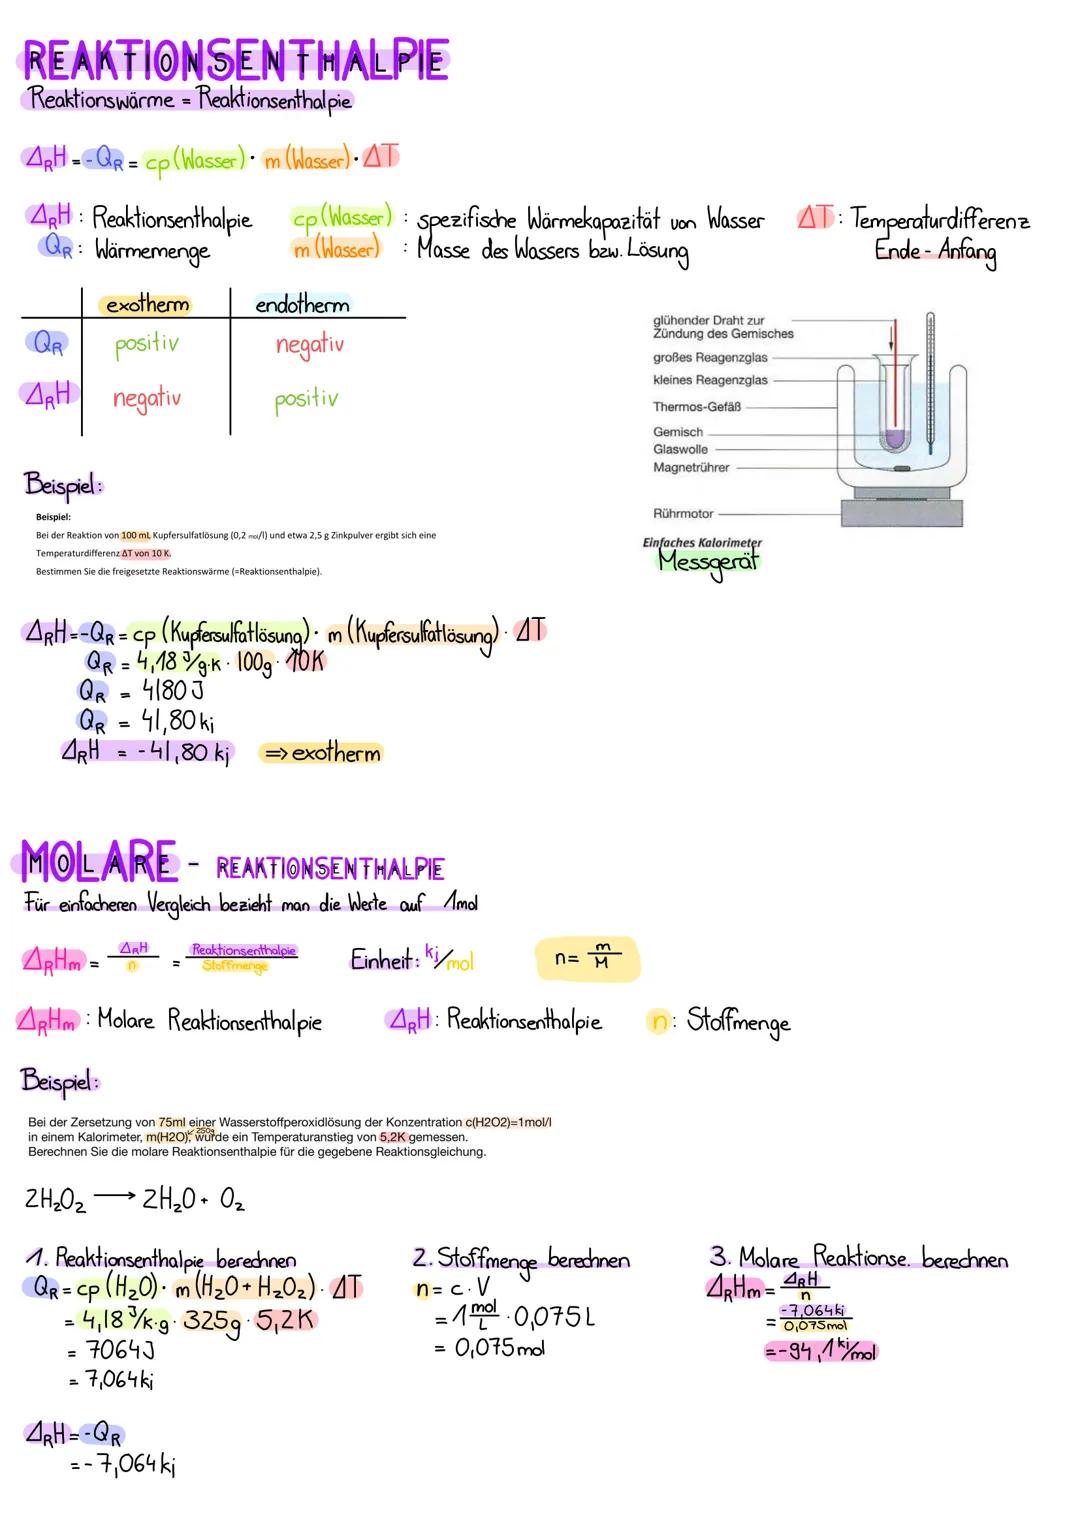 REAKTIONSENTHALPIE
Reaktionswärme = Reaktionsenthalpie
ΔRH = -QR = cp (Wasser) · m (Wasser) · ΔT
ΔRH : Reaktionsenthalpie cp (Wasser) : spezifische Wärmekapazität von Wasser ΔT : Temperaturdifferenz
QR : Wärmemenge m (Wasser) : Masse des Wassers bzw. Lösung Ende - Anfang
exotherm endotherm
QR positiv negativ
ΔRH negativ positiv
glühender Draht zur
Zündung des Gemisches
großes Reagenzglas
kleines Reagenzglas
Thermos-Gefäß
Gemisch
Glaswolle
Magnetrührer
Rührmotor
Einfaches Kalorimeter
Messgerät
Beispiel:
Beispiel:
Bei der Reaktion von 100 mL Kupfersulfatlösung (0,2 mol/l) und etwa 2,5 g Zinkpulver ergibt sich eine
Temperaturdifferenz ΔT von 10 K.
Bestimmen Sie die freigesetzte Reaktionswärme (=Reaktionsenthalpie).
ΔRH = -QR = cp (Kupfersulfatlösung) · m (Kupfersulfatlösung) · ΔT
QR = 4,18 J/g·K · 100g · 10K
QR = 4180 J
QR = 41,80 kj
ΔRH = -41,80 kj ⇒ exotherm
MOLARE - REAKTIONSENTHALPIE
Für einfacheren Vergleich bezieht man die Werte auf 1mol
ΔRHm = ΔRH / n = Reaktionsenthalpie / Stoffmenge Einheit: kj/mol n = m / M
ΔRHm : Molare Reaktionsenthalpie ΔRH : Reaktionsenthalpie n : Stoffmenge
Beispiel:
Bei der Zersetzung von 75ml einer Wasserstoffperoxidlösung der Konzentration c(H2O2)=1mol/l
in einem Kalorimeter, m(H2O), ↙250g wurde ein Temperaturanstieg von 5,2K gemessen.
Berechnen Sie die molare Reaktionsenthalpie für die gegebene Reaktionsgleichung.
2H₂O₂ → 2H₂O + O₂
1. Reaktionsenthalpie berechnen
QR = cp (H₂O) · m (H₂O + H₂O₂) · ΔT
= 4,18 J/K·g · 325g · 5,2K
= 7064J
= 7,064kj
ΔRH = -QR
= -7,064kj
2. Stoffmenge berechnen
n = c · V
= 1 mol/L · 0,075L
= 0,075mol
3. Molare Reaktionse. berechnen
ΔRHm = ΔRH / n
= -7,064kj / 0,075mol
= -94,1 kj/mol